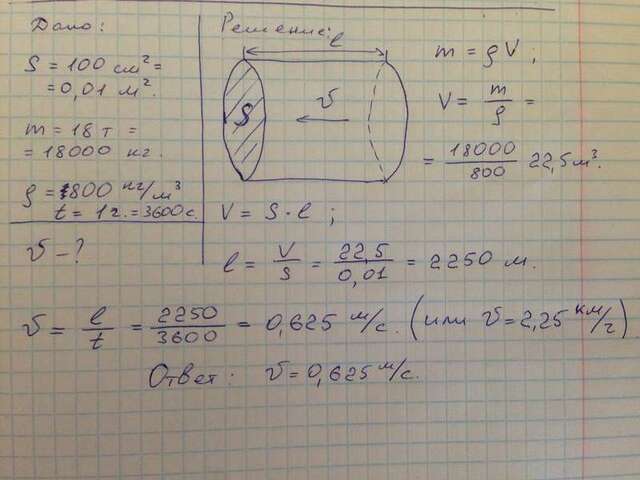 Дано:
S = 100 см² =
= 0,01 м².
m = 18 т =
= 18000 кг.
ρ = 800 кг/м³
t = 1 ч. = 3600 с.
v - ?
Решение:
l
S
v
m = ρV ;
V = m/ρ =
= 18000/800 22,5 м³.
V = S · l ;
l = V/S = 22,5/0,01 = 2250 м.
v = l/t = 2250/3600 = 0,625 м/с. (или v = 2,25 км/ч)
Ответ: v = 0,625 м/с.